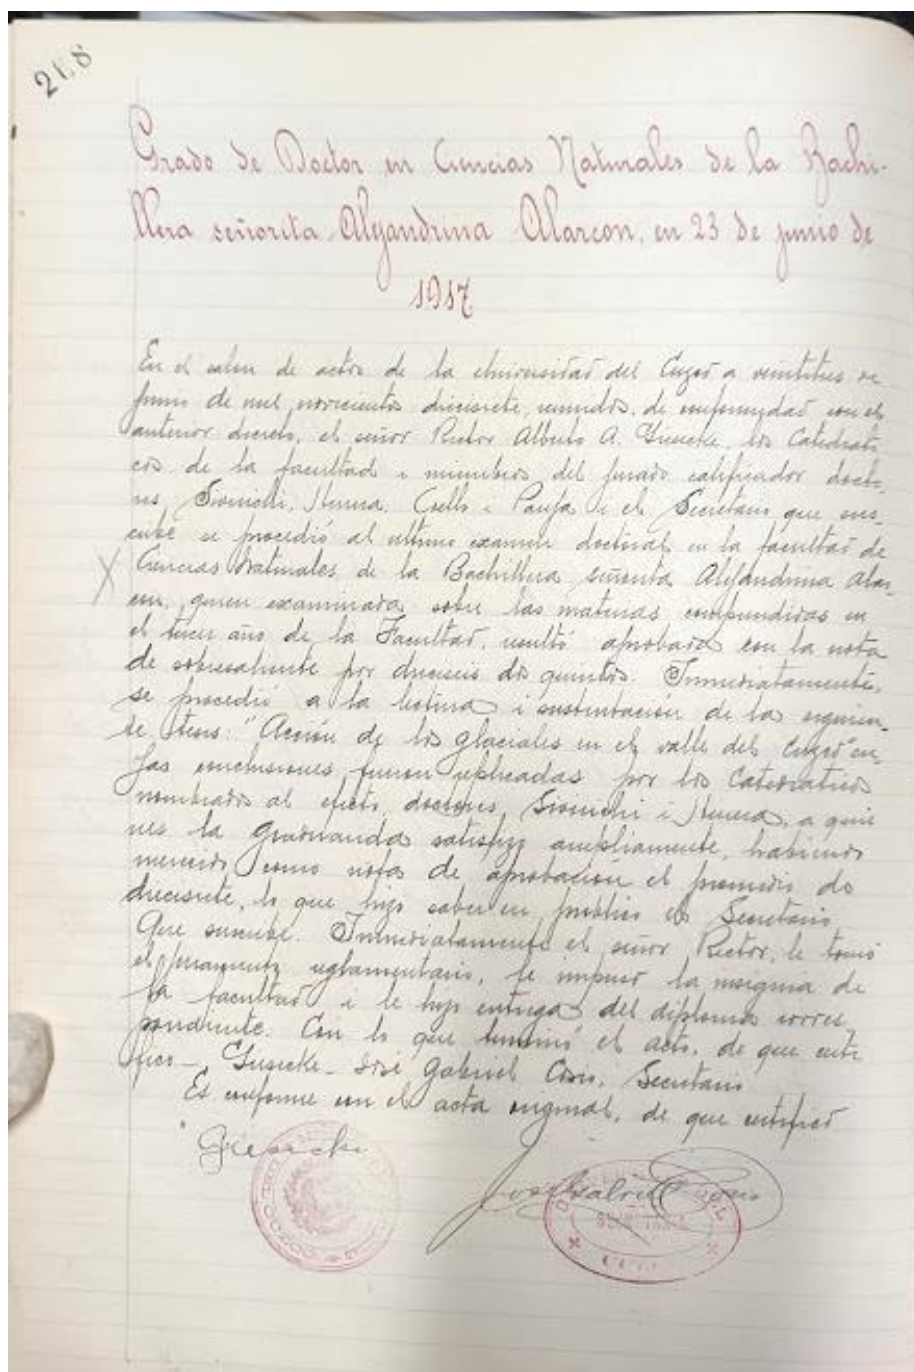 218
Grado de Doctor en Ciencias Naturales de la Bachi-
llera señorita Alejandrina Alarcon, en 23 de junio de
1917
En el salon de actos de la Universidad del Cuzco a veintitres de
junio de mil novecientos diecisiete, reunidos, de conformidad con el
anterior decreto, el señor Rector Alberto A. Giesecke, los Catedrati-
cos de la facultad i miembros del jurado calificador docto-
res, Sivirichi, Herrera, Coello i Pareja i el Secretario que sus-
cribe se procedió al ultimo examen doctoral, en la facultad de
X Ciencias Naturales, de la Bachillera, señorita Alejandrina Alar-
con, quien examinada sobre las materias comprendidas en
el tercer año de la Facultad, resultó aprobada con la nota
de sobresaliente por dieciseis dos quintos. Inmediatamente,
se procedió a la lectura i sustentación de la siguien-
te tesis: "Acción de los glaciales en el valle del Cuzco" cu-
yas conclusiones fueron replicadas por los Catedraticos
nombrados al efecto, doctores, Sivirichi i Herrera, a quie
nes la graduanda satisfizo ampliamente, habiendo
merecido como nota de aprobación el promedio de
diecisiete, lo que hizo saber en público el Secretario
que suscribe. Inmediatamente el señor Rector, le tomó
el juramento reglamentario, le impuso la insignia de
la facultad i le hizo entrega del diploma corres-
pondiente. Con lo que terminó el acto, de que certi
fico — Giesecke — José Gabriel Cosio, Secretario
Es conforme con el acta original, de que certifico
Giesecke
José Gabriel Cosio